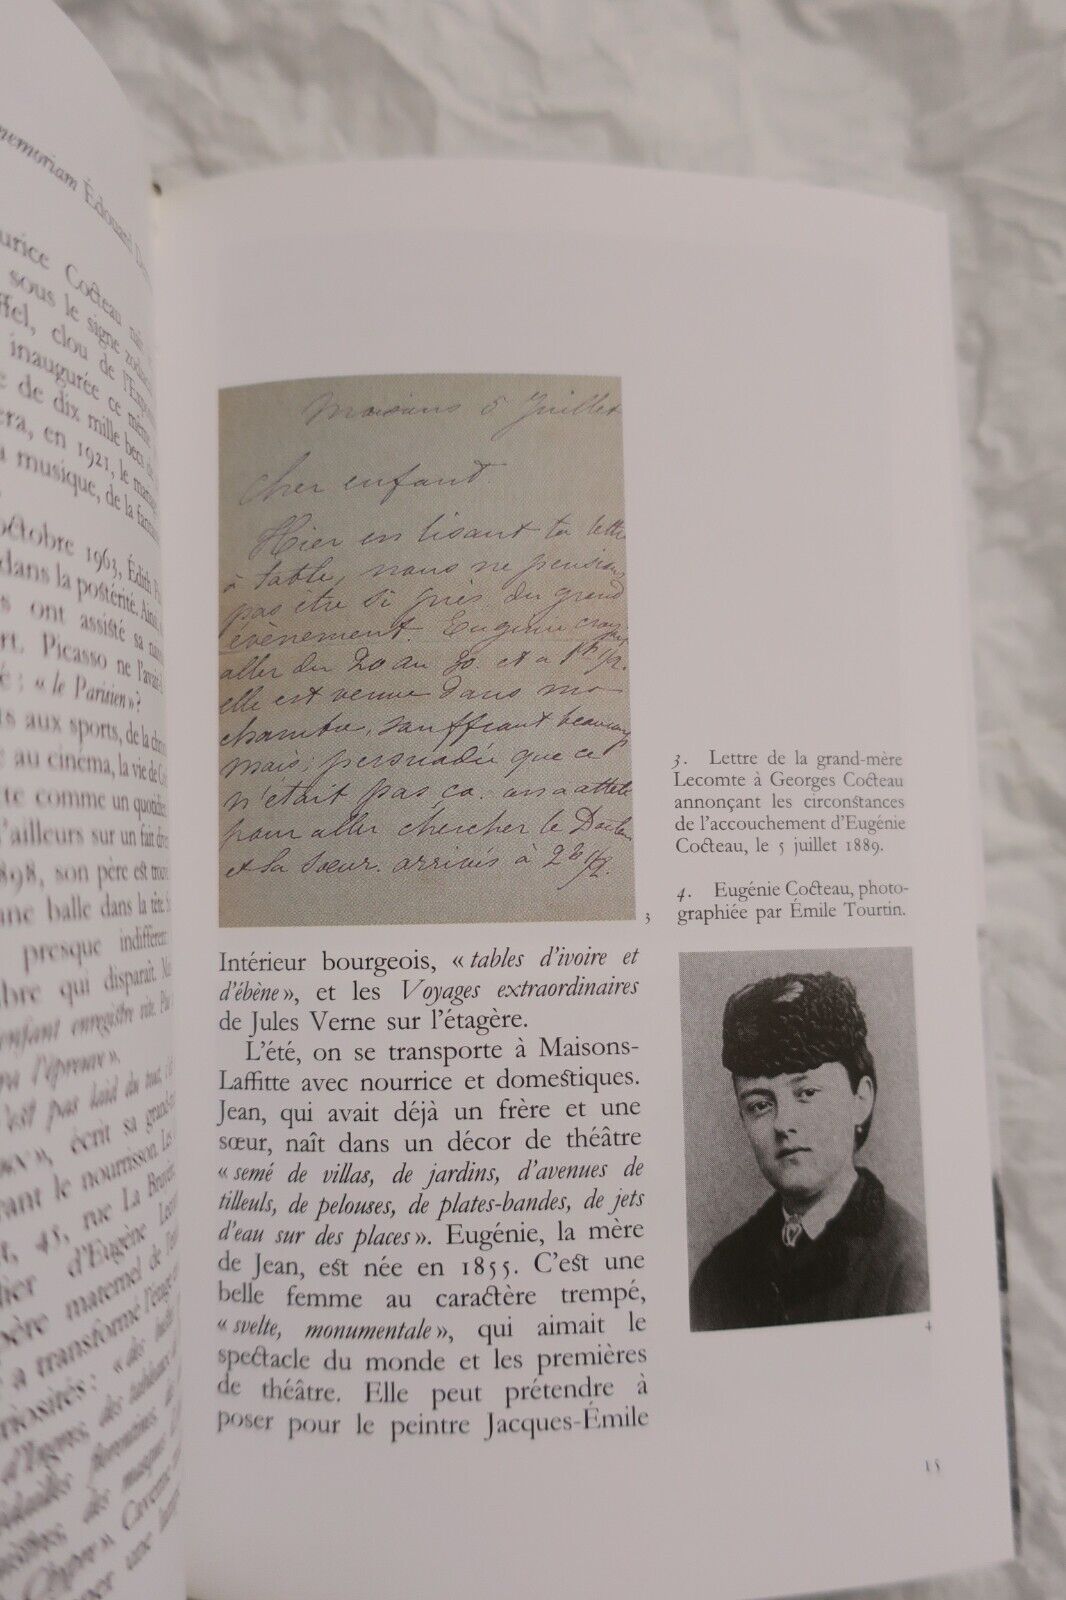 memoriam Édouard
urice Cocteau naî
sous le signe zodia
ffel, clou de l'Expo
inaugurée ce même
e de dix mille becs de
era, en 1921, le
a musique, de la
octobre 1963, Édith
dans la postérité. Ainsi,
s ont assisté sa
rt. Picasso ne l'avait
é : « le Parisien » ?
s aux sports, de la
e au cinéma, la vie de
te comme un quotidien
d'ailleurs sur un fait divers
898, son père est
une balle dans la tête
presque indifférent
bre qui disparaît.
enfant enregistre
ra l'épreuve ».
c'est pas laid du tout
», écrit sa grand
rant le nourrisson.
r, 45, rue La Bruyère
lier d'Eugène
père maternel de
a transformé
iosités : « des
d'Ingres, des tableaux
florentines
des masques
Chypre »
Maisons 5 Juillet
Cher enfant.
Hier en lisant ta lettre
à table, nous ne pensions
pas être si près du grand
évènement. Eugénie
aller du 20 au 30. et à 1h 1/2.
elle est venue dans ma
chambre, souffrant beaucoup
mais, persuadée que ce
n'était pas ça. on a attelé
pour aller chercher le
et la sœur. arrivés à 2h 1/2.
3
3. Lettre de la grand-mère
Lecomte à Georges Cocteau
annonçant les circonstances
de l'accouchement d'Eugénie
Cocteau, le 5 juillet 1889.
4. Eugénie Cocteau, photo-
graphiée par Émile Tourtin.
Intérieur bourgeois, « tables d'ivoire et
d'ébène », et les Voyages extraordinaires
de Jules Verne sur l'étagère.
L'été, on se transporte à Maisons-
Laffitte avec nourrice et domestiques.
Jean, qui avait déjà un frère et une
sœur, naît dans un décor de théâtre
« semé de villas, de jardins, d'avenues de
tilleuls, de pelouses, de plates-bandes, de jets
d'eau sur des places ». Eugénie, la mère
de Jean, est née en 1855. C'est une
belle femme au caractère trempé,
« svelte, monumentale », qui aimait le
spectacle du monde et les premières
de théâtre. Elle peut prétendre à
poser pour le peintre Jacques-Émile
4
15